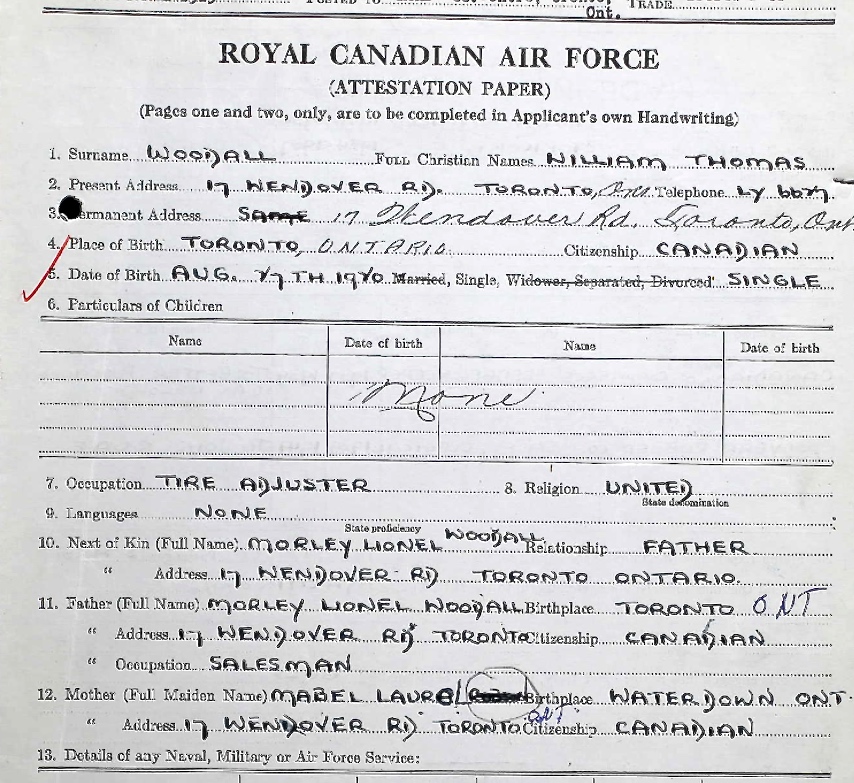 Ont. TRADE
ROYAL CANADIAN AIR FORCE
(ATTESTATION PAPER)
(Pages one and two, only, are to be completed in Applicant's own Handwriting)
1. Surname WOODALL FULL Christian Names WILLIAM THOMAS
2. Present Address 17 WENDOVER RD. TORONTO, Ont. Telephone LY 6679
3. ermanent Address SAME 17 Wendover Rd. Toronto, Ont
4. Place of Birth TORONTO, ONTARIO Citizenship CANADIAN
5. Date of Birth AUG. TH Married, Single, Widower, Separated, Divorced: SINGLE
6. Particulars of Children
Name Date of birth Name Date of birth
None
7. Occupation TIRE ADJUSTER 8. Religion UNITED
State denomination
9. Languages NONE
State proficiency
10. Next of Kin (Full Name) MORLEY LIONEL WOODALL Relationship FATHER
" Address 17 WENDOVER RD TORONTO ONTARIO.
11. Father (Full Name) MORLEY LIONEL WOODALL Birthplace TORONTO ONT
" Address 17 WENDOVER RD TORONTO Citizenship CANADIAN
" Occupation SALESMAN
12. Mother (Full Maiden Name) MABEL LAUREL Birthplace WATERDOWN ONT.
" Address 17 WENDOVER RD TORONTO ONT. Citizenship CANADIAN
13. Details of any Naval, Military or Air Force Service: